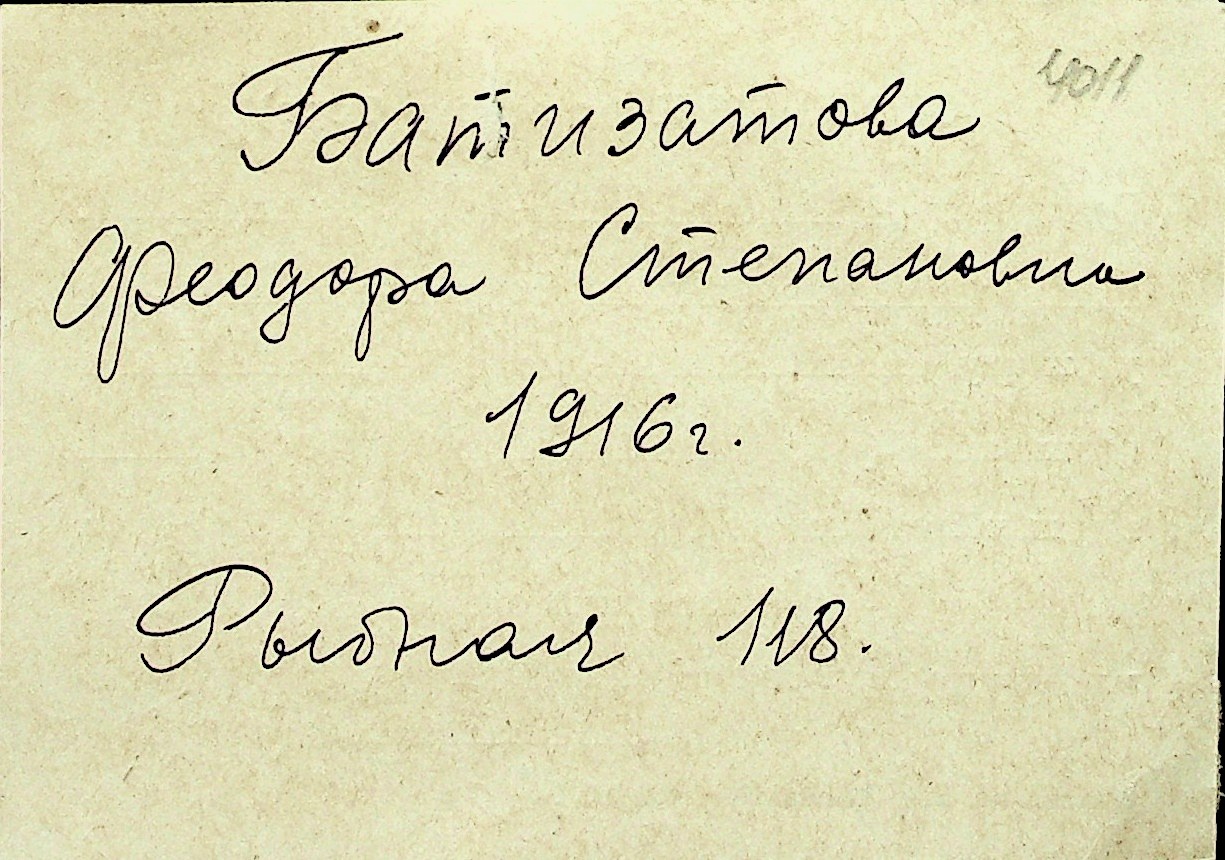 4011
Батизатова
Феодора Степановна
1916г.
Рыбная 118.